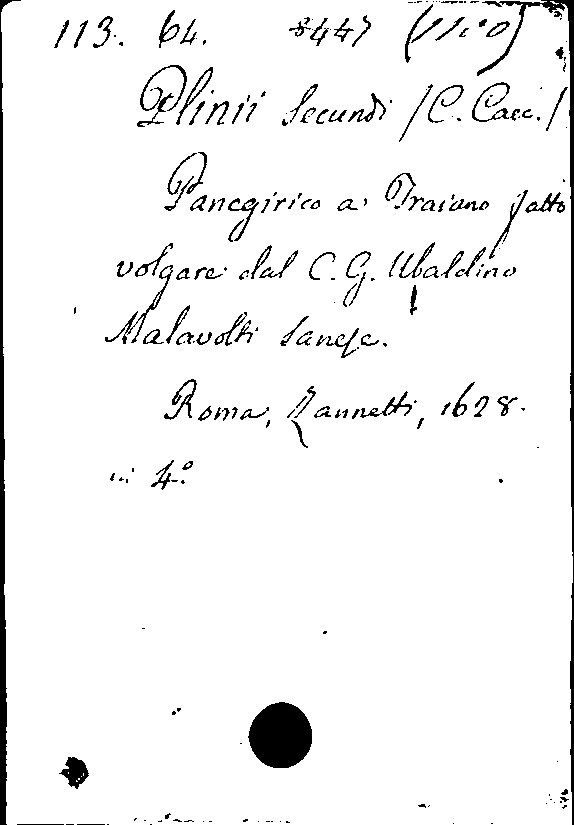 113. 64. 8447 (11io)
Plinii Secundi /C. Caec./
Panegirico a Traiano fatto
volgare dal C. G. Ubaldino
Malavolti Sanese.
Roma, Zannetti, 1628.
in 4º